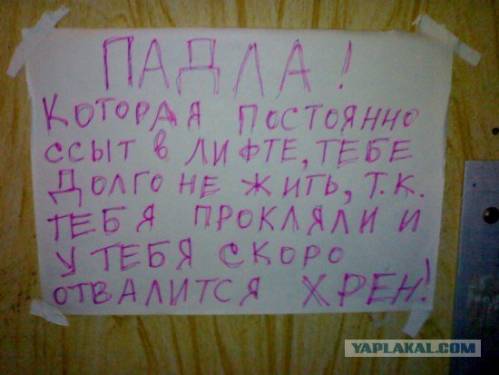 ПАДЛА!
КОТОРАЯ ПОСТОЯННО
ССЫТ В ЛИФТЕ, ТЕБЕ
ДОЛГО НЕ ЖИТЬ, Т.К.
ТЕБЯ ПРОКЛЯЛИ И
У ТЕБЯ СКОРО
ОТВАЛИТСЯ ХРЕН!
YAPLAKAL.COM